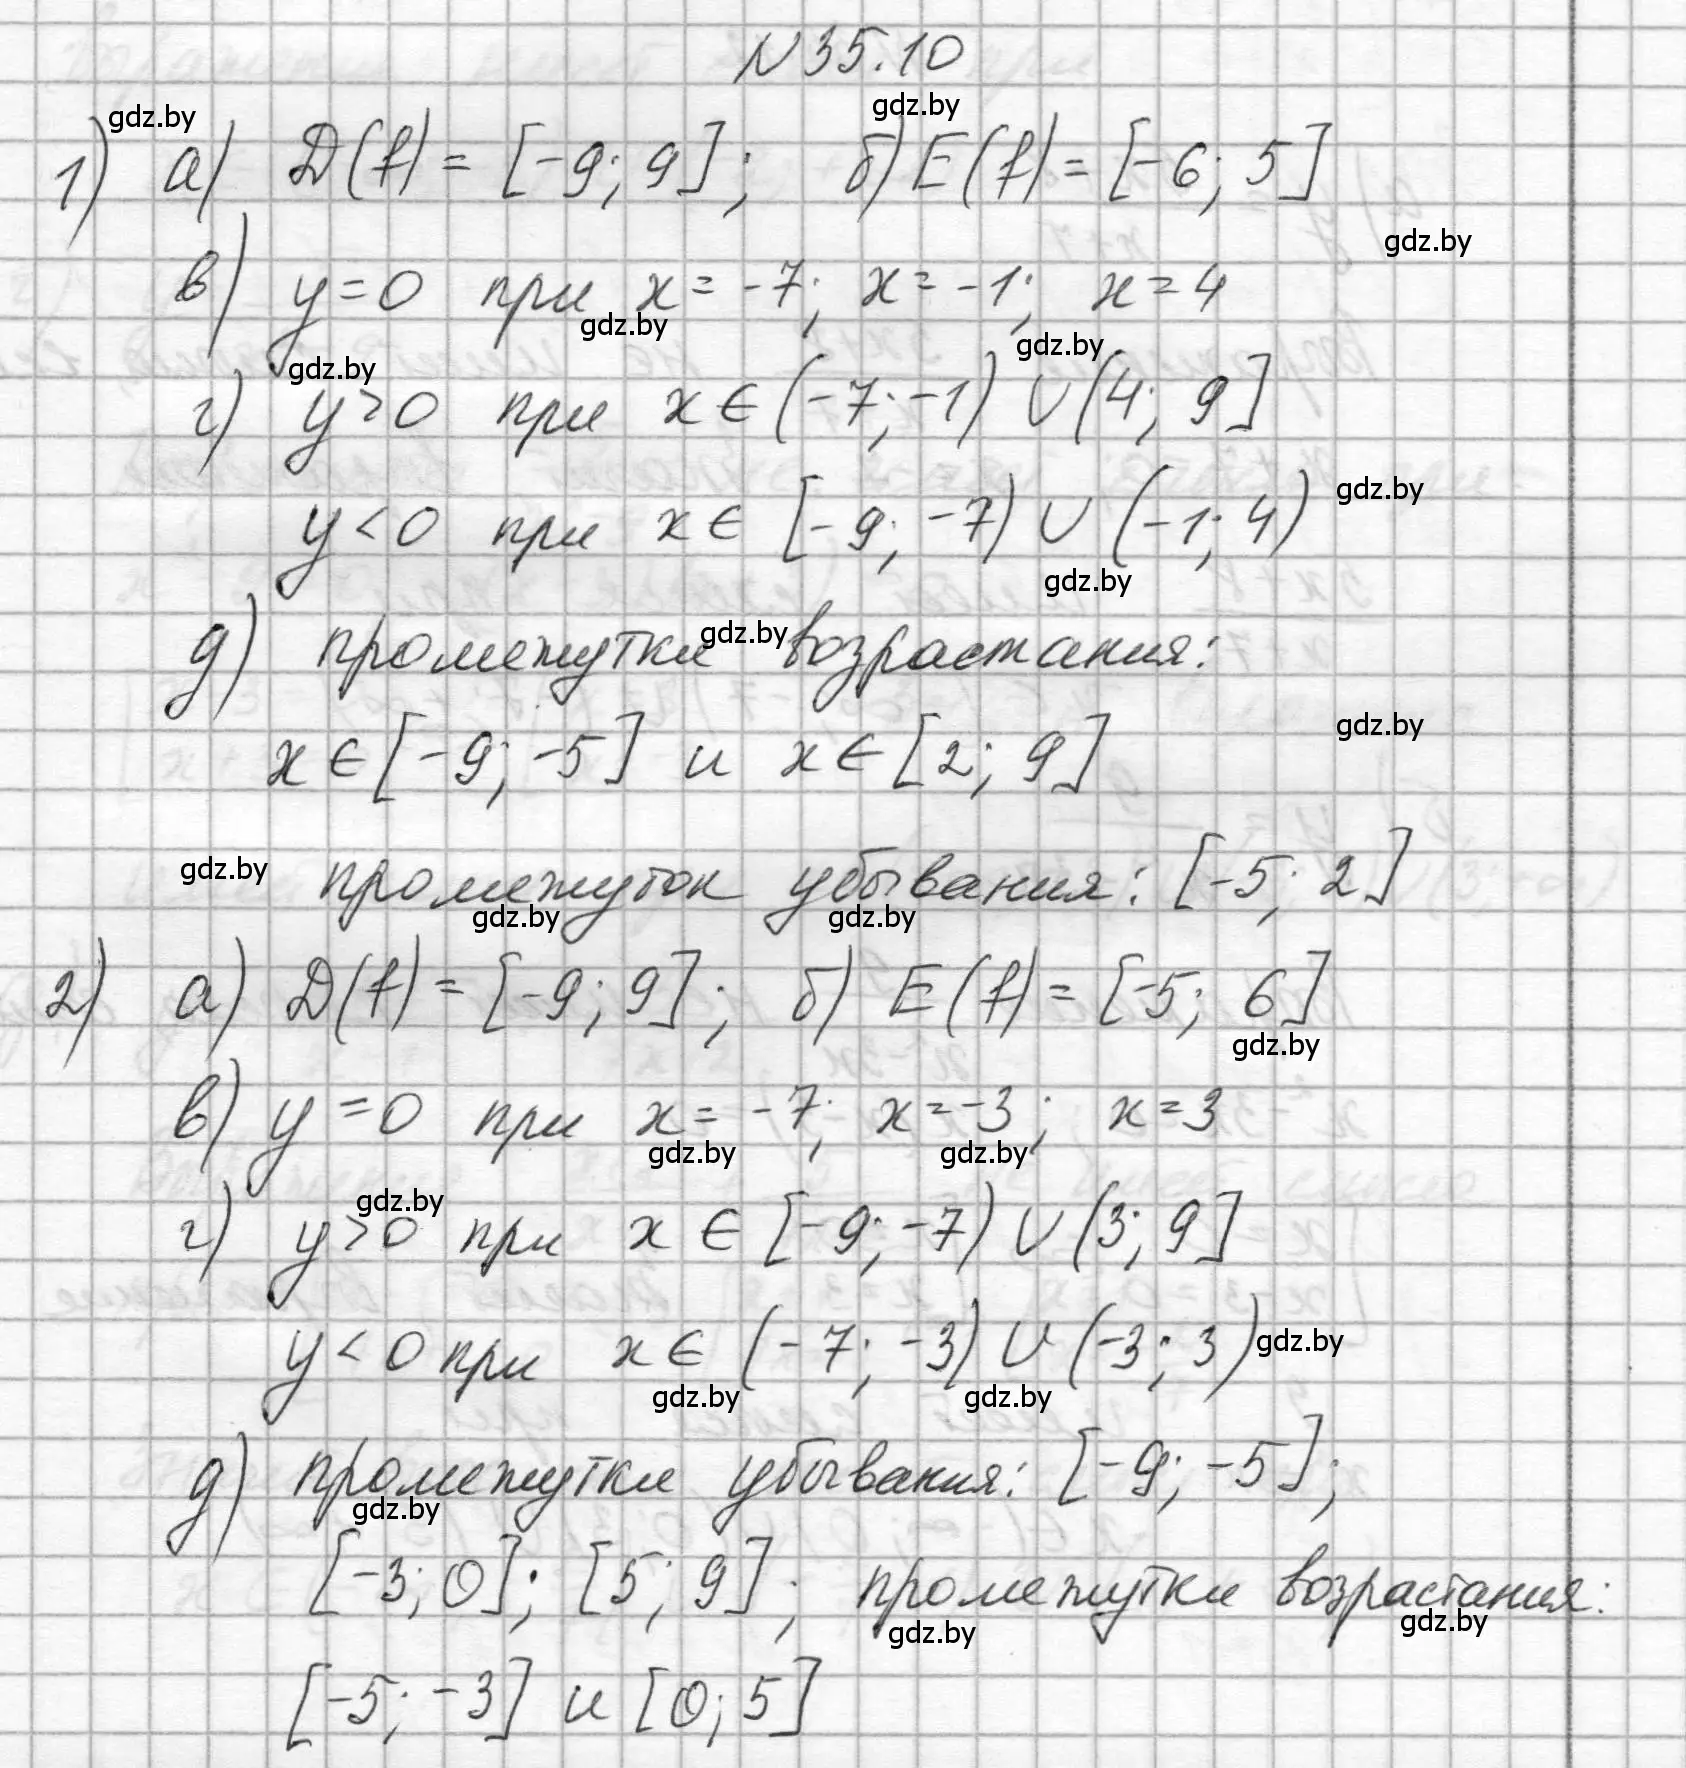 N 35.10
gdz.by gdz.by
1) а) D(f) = [-9; 9]; б) E(f) = [-6; 5]
gdz.by
в) y=0 при x= -7; x= -1; x=4
gdz.by gdz.by gdz.by
г) y>0 при x∈(-7; -1) ∪ (4; 9]
y<0 при x∈ [-9; -7) ∪ (-1; 4) gdz.by
gdz.by
д) промежутки возрастания:
gdz.by
x∈[-9; -5] и x∈[2; 9] gdz.by
gdz.by промежуток убывания: [-5; 2]
gdz.by gdz.by
2) а) D(f) = [-9; 9]; б) E(f) = [-5; 6]
gdz.by
в) y=0 при x= -7; x=-3; x=3
gdz.by gdz.by
gdz.by
г) y>0 при x ∈ [-9; -7) ∪ (3; 9]
y<0 при x∈ (-7; -3) ∪ (-3; 3) gdz.by
gdz.by gdz.by
д) промежутки убывания: [-9; -5];
gdz.by
[-3; 0]; [5; 9]; промежутки возрастания:
gdz.by gdz.by
[-5; -3] и [0; 5]